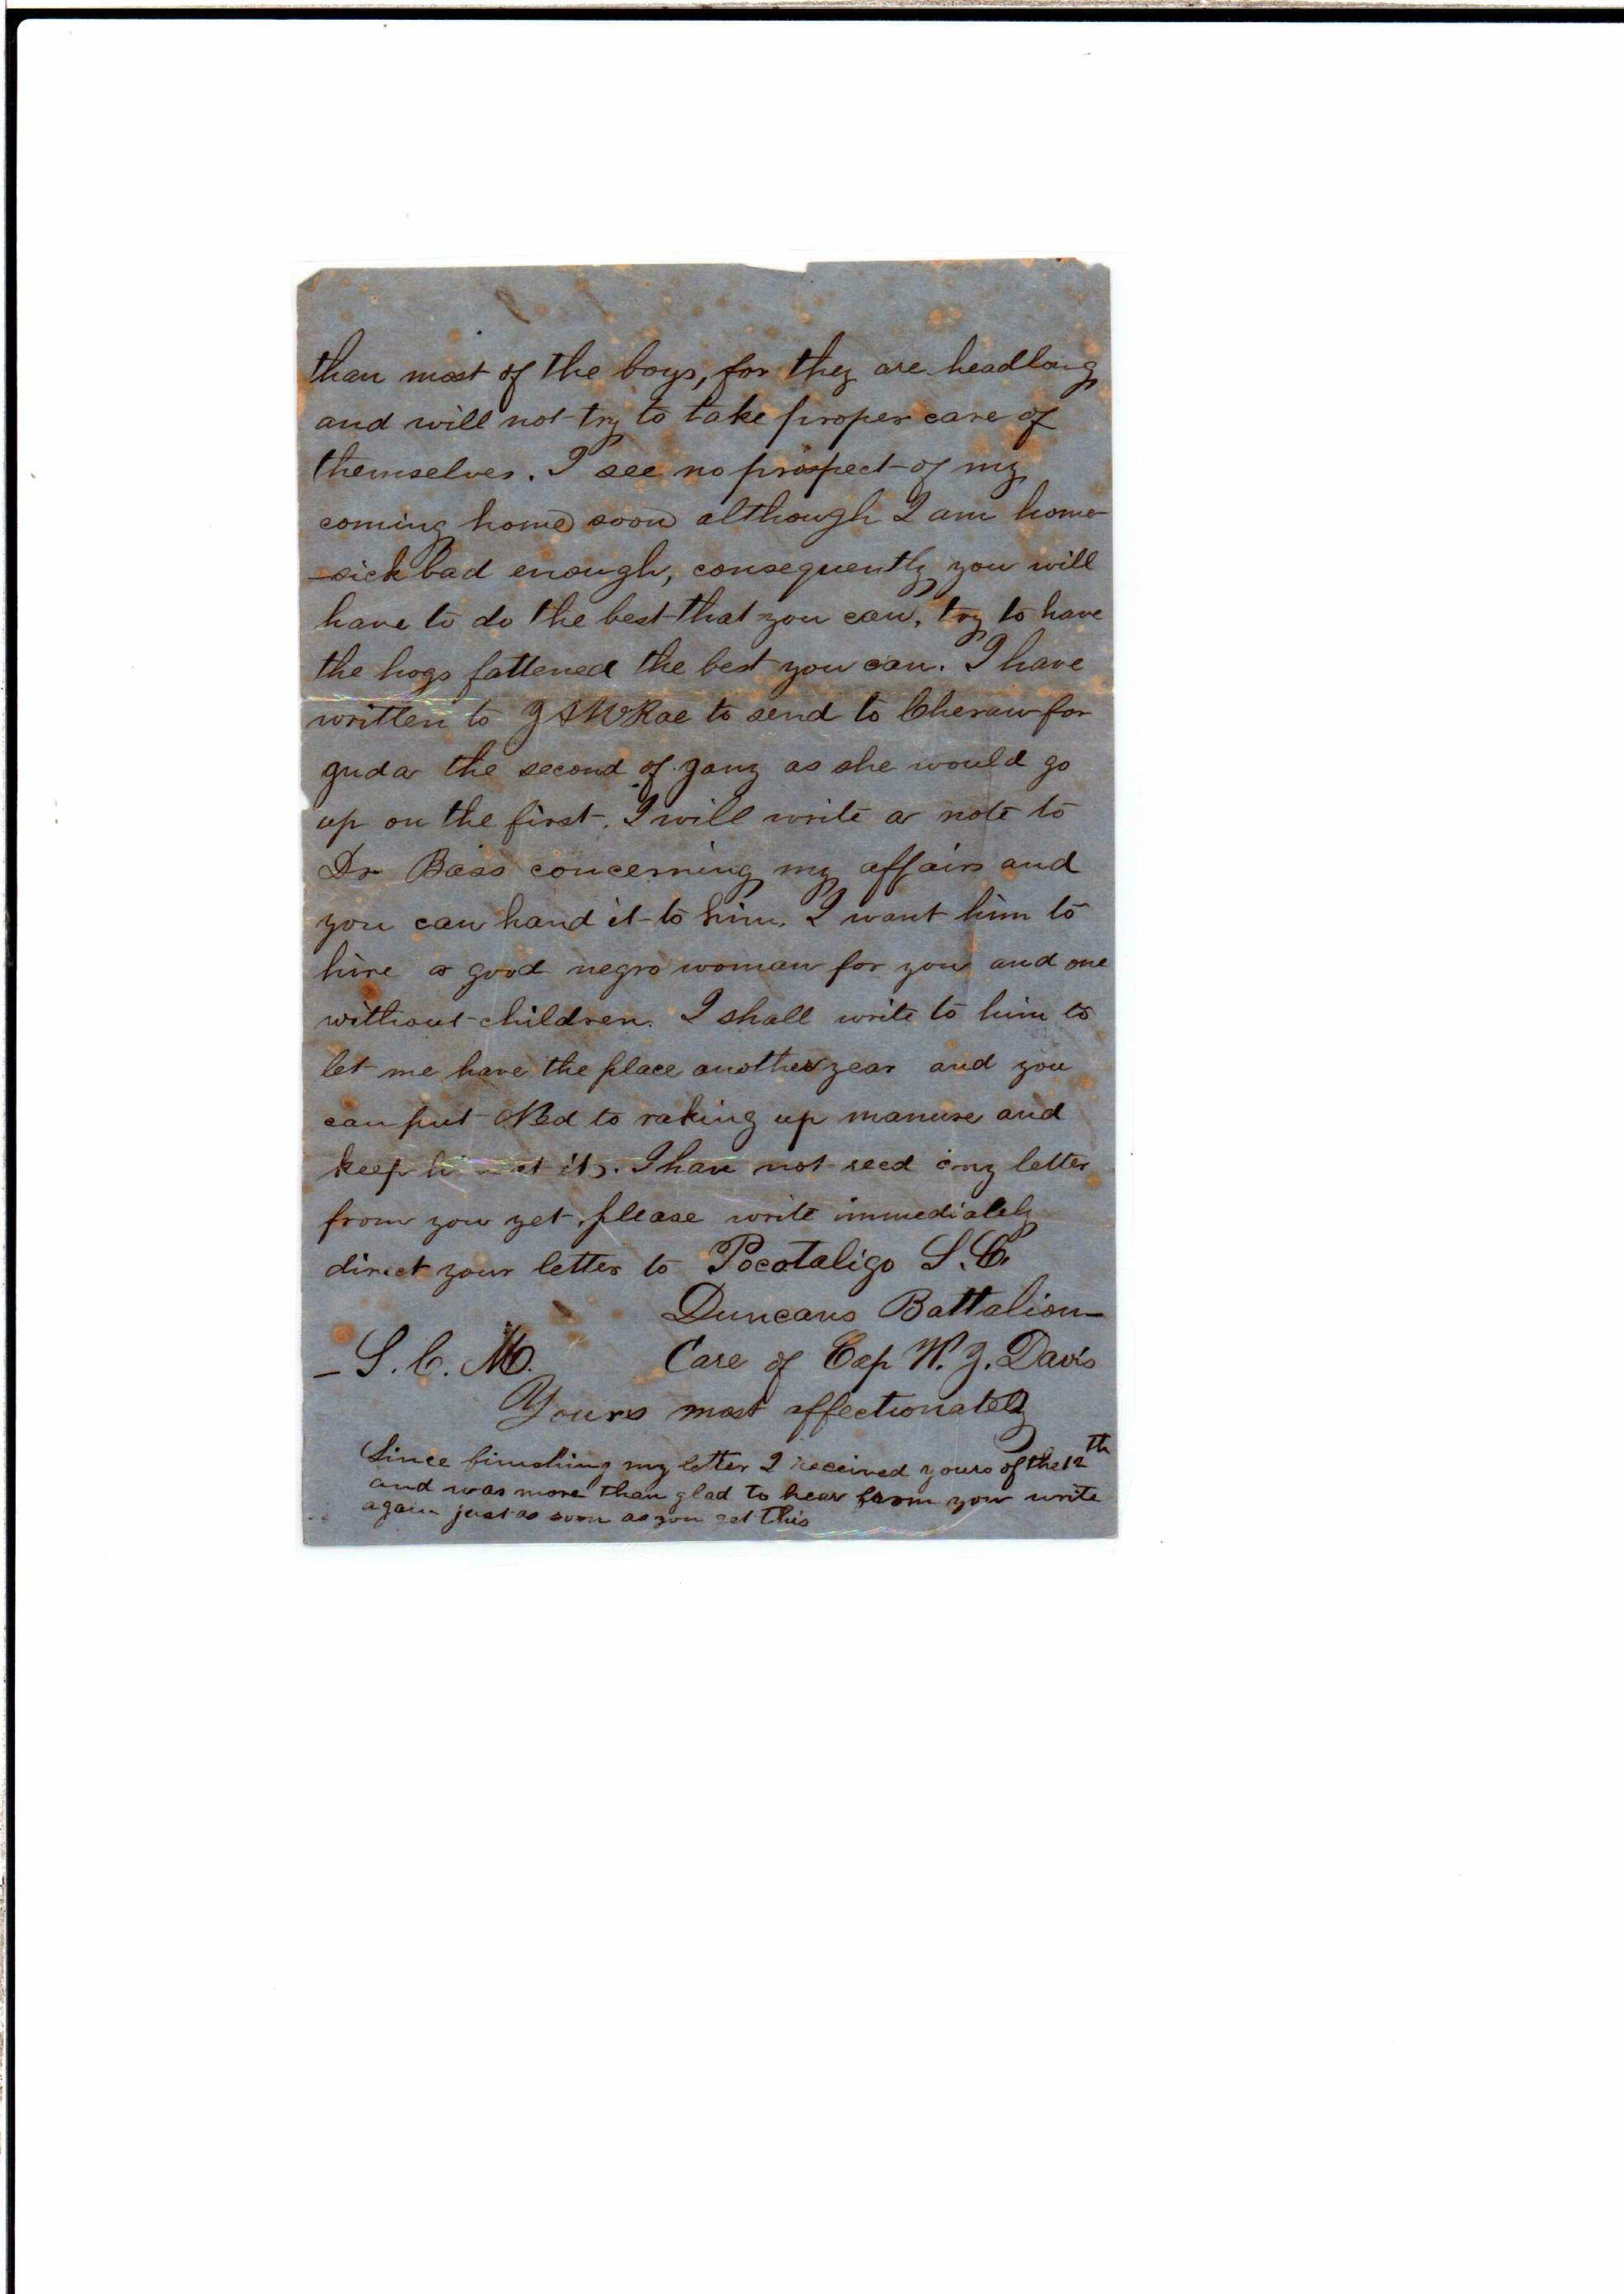 than most of the boys, for they are headlong
and will not try to take proper care of
themselves. I see no prospect of my
coming home soon although I am home-
-sick bad enough, consequently you will
have to do the best that you can, try to have
the hogs fattened the best you can. I have
written to J A McRae to send to Cheraw for
Juda the second of Jany as she would go
up on the first. I will write a note to
Dr Bass concerning my affairs and
you can hand it to him. I want him to
hire a good negro woman for you and one
without children. I shall write to him to
let me have the place another year and you
can put Ned to raking up manure and
keep at it. I have not recd any letter
from you yet, please write immediately
direct your letter to Pocotaligo S. C.
Duncans Battalion
- S. C. M. Care of Cap W. J. Davis
Yours most affectionately
Since finishing my letter I received yours of the 12th
and was more than glad to hear from you write
again just as soon as you get this